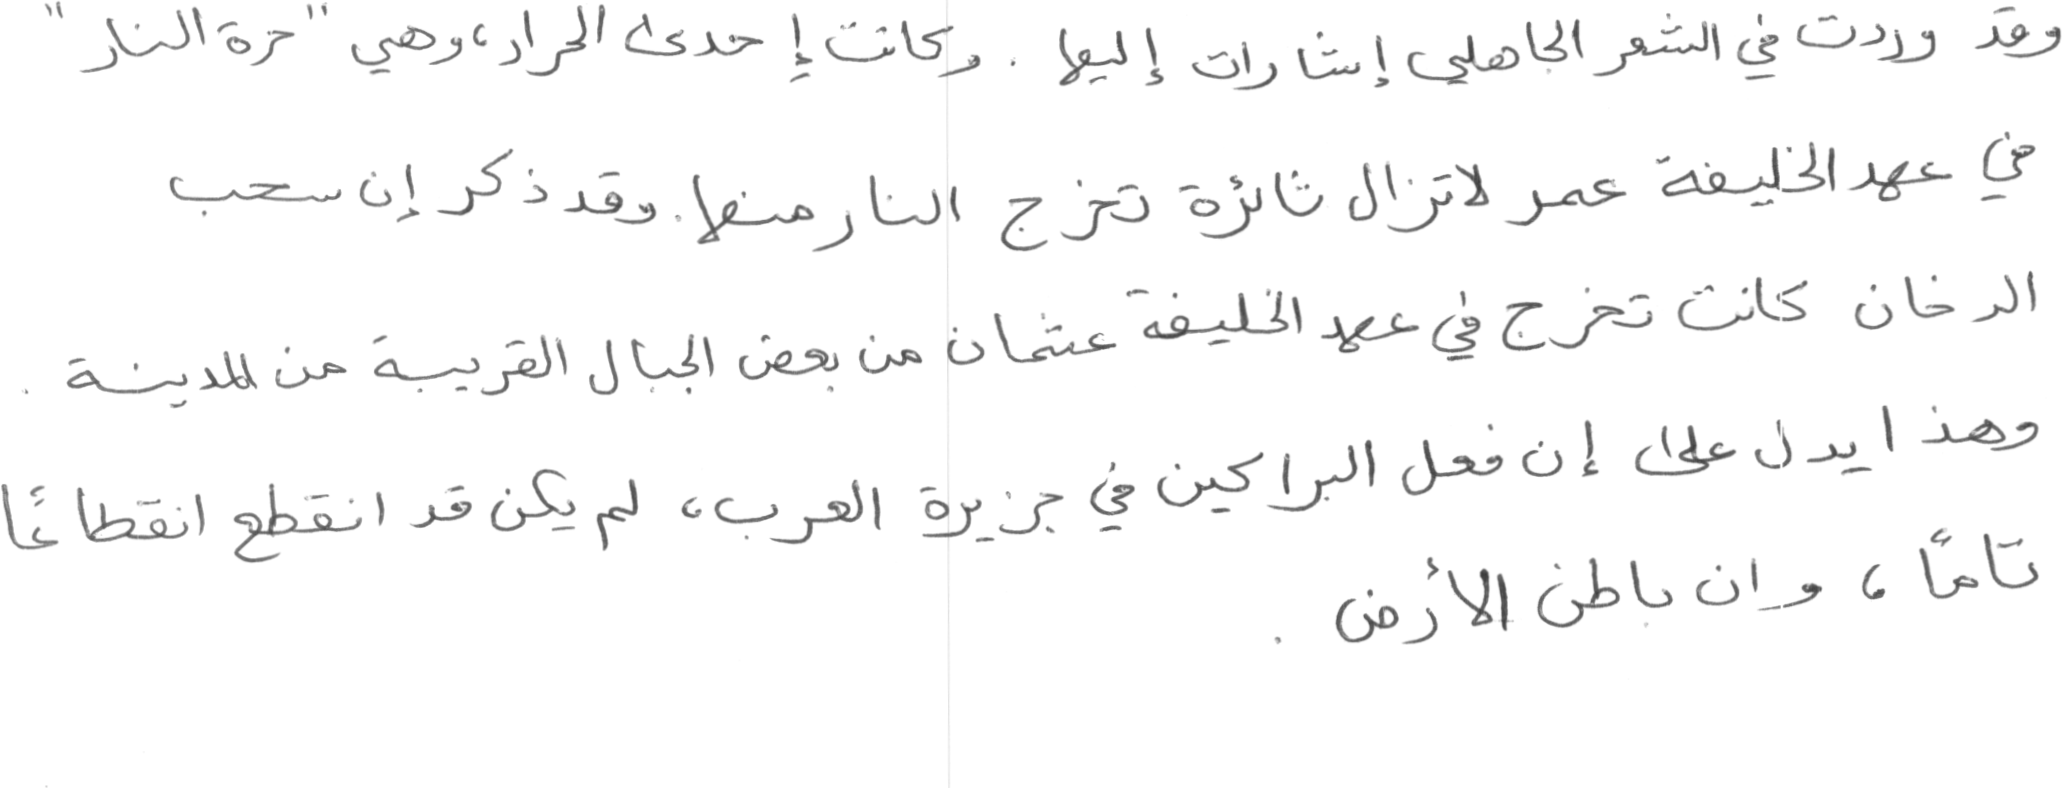 وقد وردت في الشعر الجاهلي إشارات إليها . وكانت إحدى الحرار، وهي "حرة النار"
في عهد الخليفة عمر لاتزال ثائرة تخرج النار منها. وقد ذكر إن سحب
الدخان كانت تخرج في عهد الخليفة عثمان من بعض الجبال القريبة من المدينة .
وهذا يدل على إن فعل البراكين في جزيرة العرب، لم يكن قد انقطع انقطاعًا
تامًا ، وان باطن الأرض .